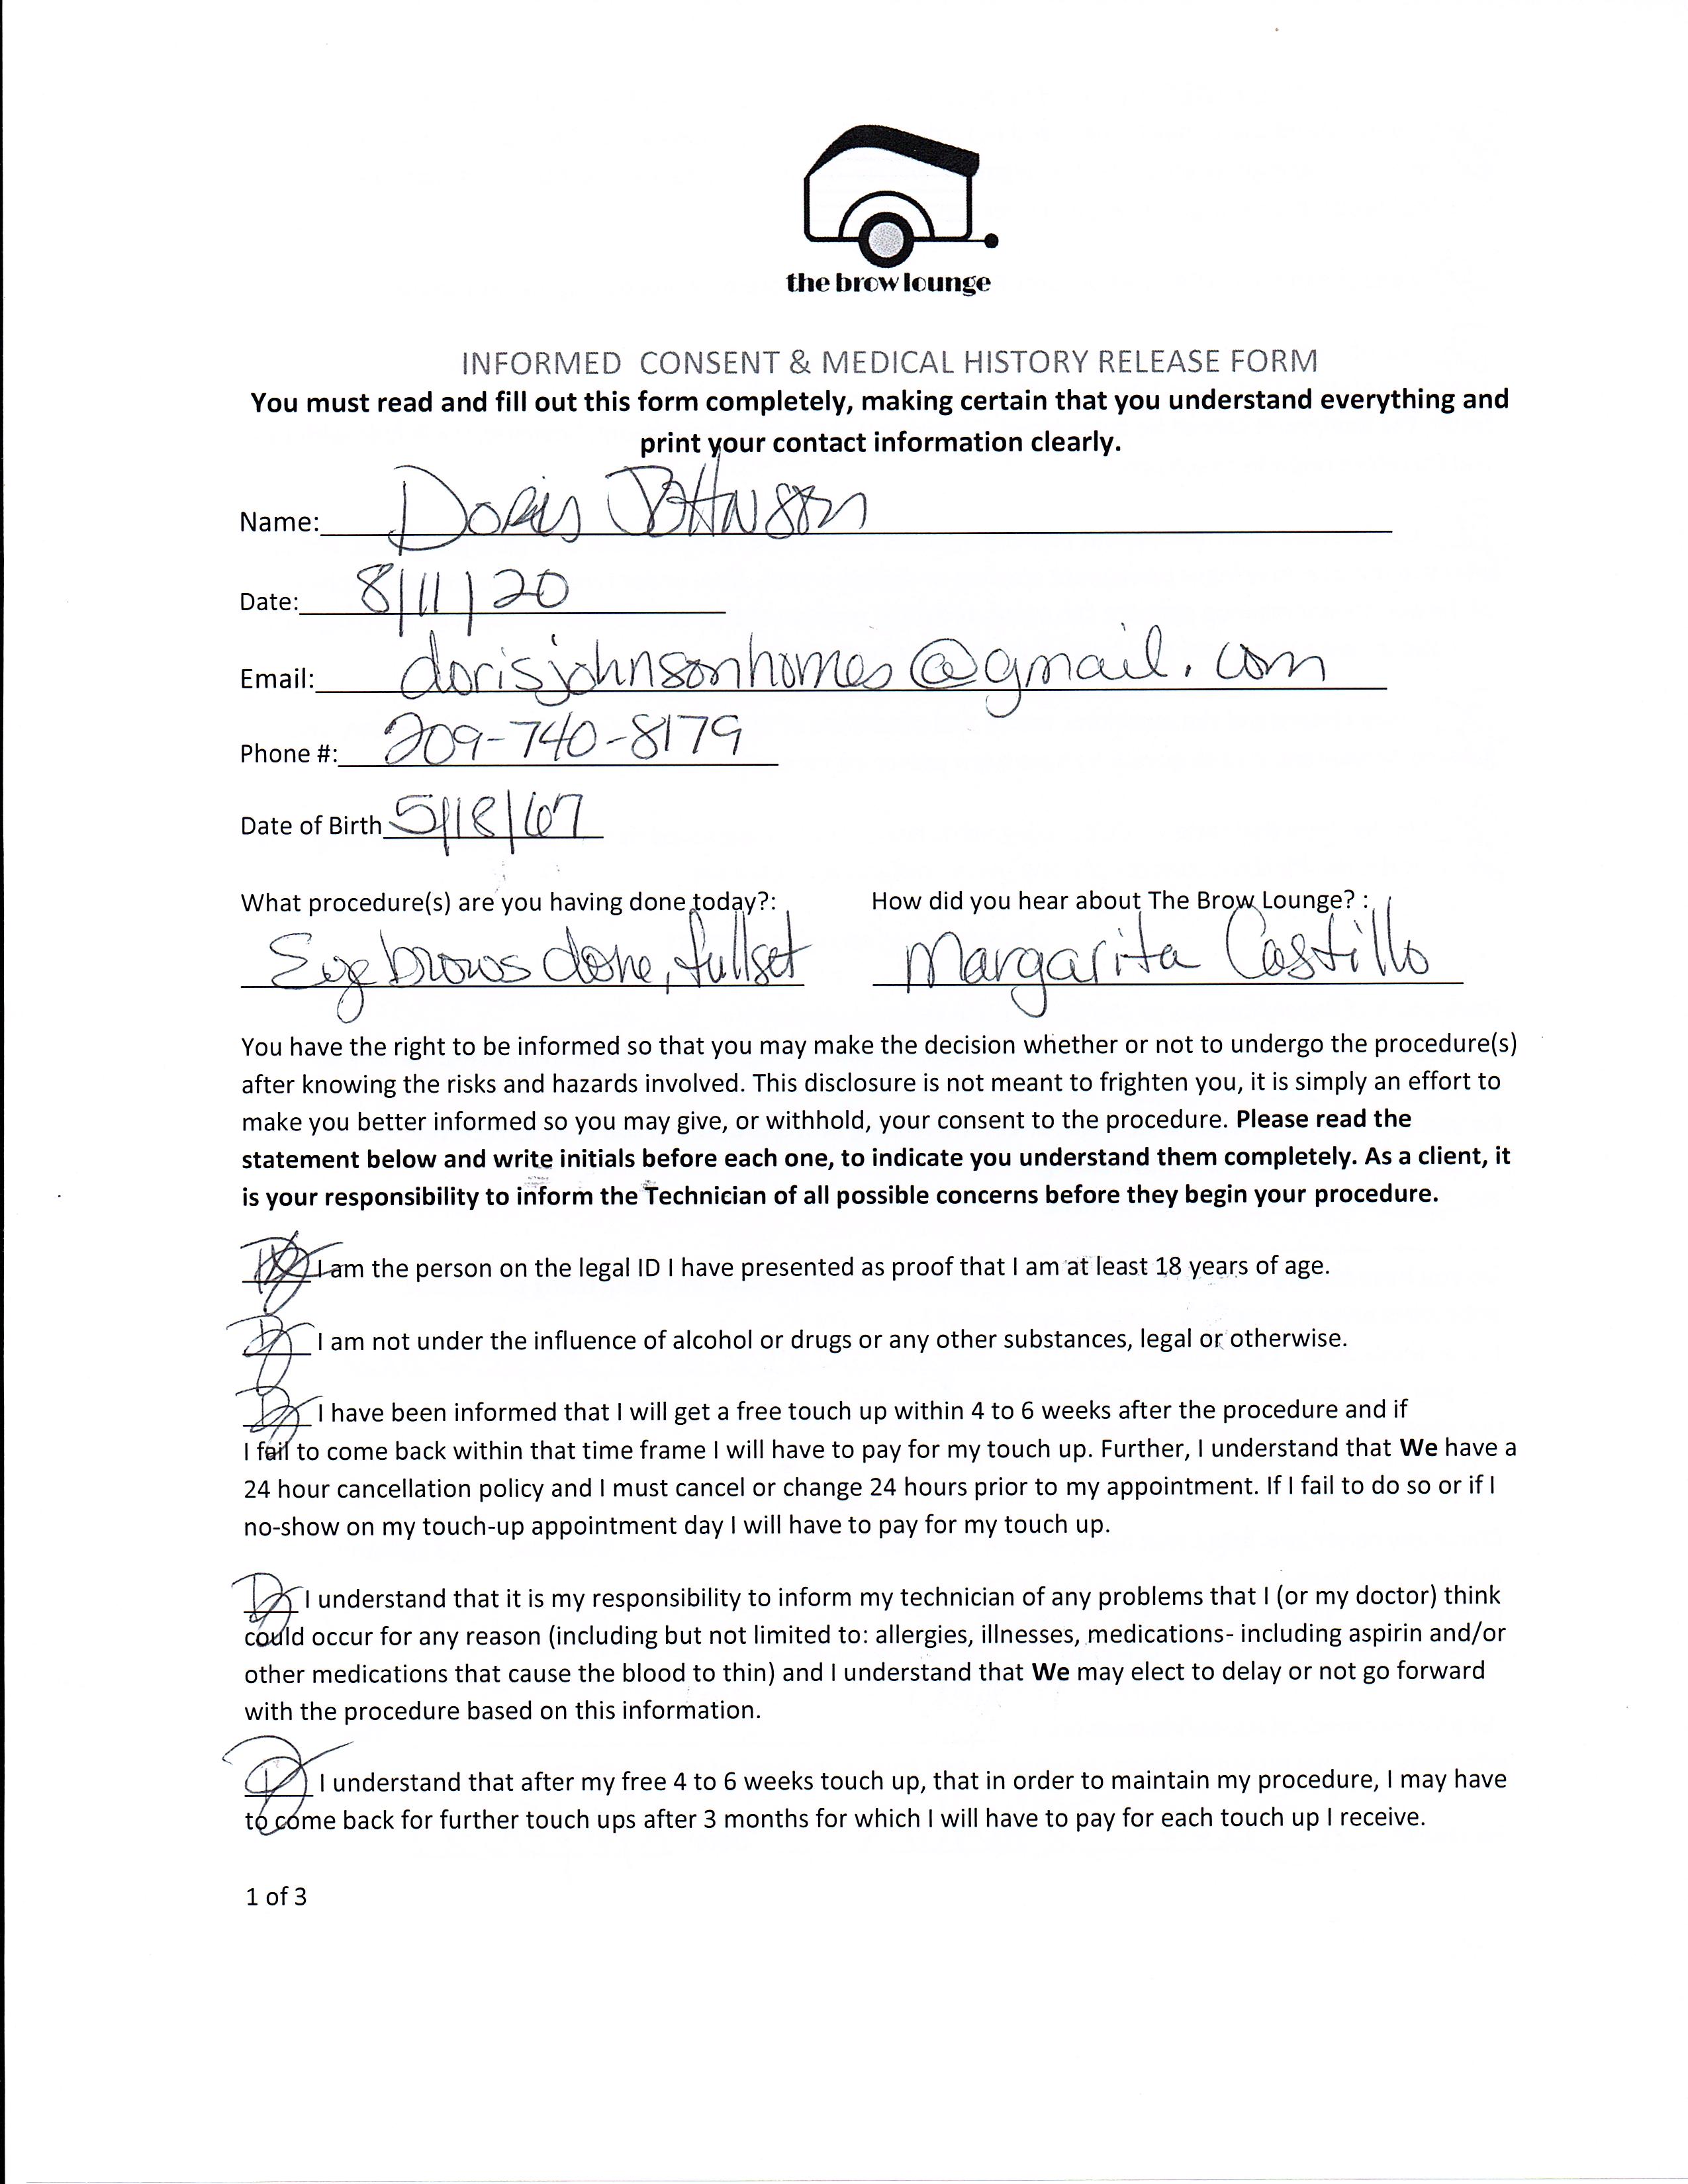 the brow lounge
INFORMED CONSENT & MEDICAL HISTORY RELEASE FORM
You must read and fill out this form completely, making certain that you understand everything and
print your contact information clearly.
Name: Doris Johnson
Date: 8/11/20
Email: dorisjohnsonhomes@gmail.com
Phone #: 209-740-8179
Date of Birth 5/18/67
What procedure(s) are you having done today?: How did you hear about The Brow Lounge? :
Eye brows done, full set Margarita Castillo
You have the right to be informed so that you may make the decision whether or not to undergo the procedure(s)
after knowing the risks and hazards involved. This disclosure is not meant to frighten you, it is simply an effort to
make you better informed so you may give, or withhold, your consent to the procedure. Please read the
statement below and write initials before each one, to indicate you understand them completely. As a client, it
is your responsibility to inform the Technician of all possible concerns before they begin your procedure.
DJ I am the person on the legal ID I have presented as proof that I am at least 18 years of age.
DJ I am not under the influence of alcohol or drugs or any other substances, legal or otherwise.
DJ I have been informed that I will get a free touch up within 4 to 6 weeks after the procedure and if
I fail to come back within that time frame I will have to pay for my touch up. Further, I understand that We have a
24 hour cancellation policy and I must cancel or change 24 hours prior to my appointment. If I fail to do so or if I
no-show on my touch-up appointment day I will have to pay for my touch up.
DJ I understand that it is my responsibility to inform my technician of any problems that I (or my doctor) think
could occur for any reason (including but not limited to: allergies, illnesses, medications- including aspirin and/or
other medications that cause the blood to thin) and I understand that We may elect to delay or not go forward
with the procedure based on this information.
DJ I understand that after my free 4 to 6 weeks touch up, that in order to maintain my procedure, I may have
to come back for further touch ups after 3 months for which I will have to pay for each touch up I receive.
1 of 3